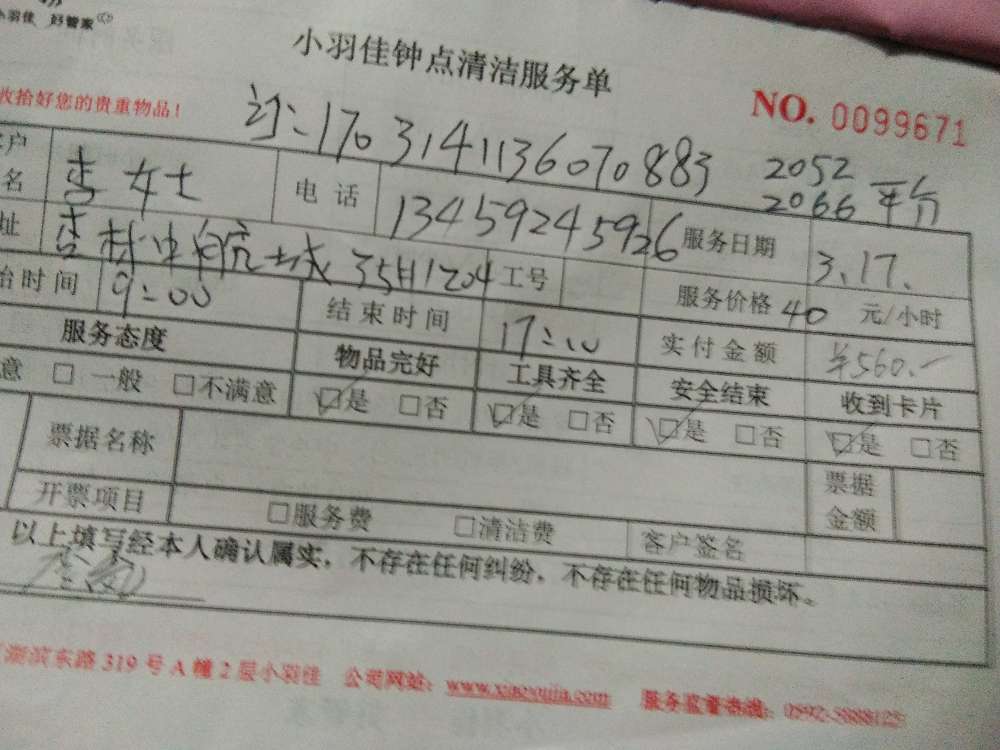 小羽佳 好管家
小羽佳钟点清洁服务单
收拾好您的贵重物品!
NO. 0099671
汀:170314113607 0883 2052
2066 平台
客户名 李女士 电话 13459245926 服务日期 3.17.
址 杏林中航城35H1204 工号 服务价格 40 元/小时
始时间 9:00 结束时间 17:00 实付金额 ¥560.-
服务态度 物品完好 工具齐全 安全结束 收到卡片
意 □ 一般 □不满意 ☑是 □否 ☑是 □否 ☑是 □否 ☑是 □否
票据名称 票据金额
开票项目 □服务费 □清洁费 客户签名
以上填写经本人确认属实,不存在任何纠纷,不存在任何物品损坏。
湖滨东路319号A幢2层小羽佳 公司网址:www.xiaoyujia.com 服务监督热线:0592-5888125